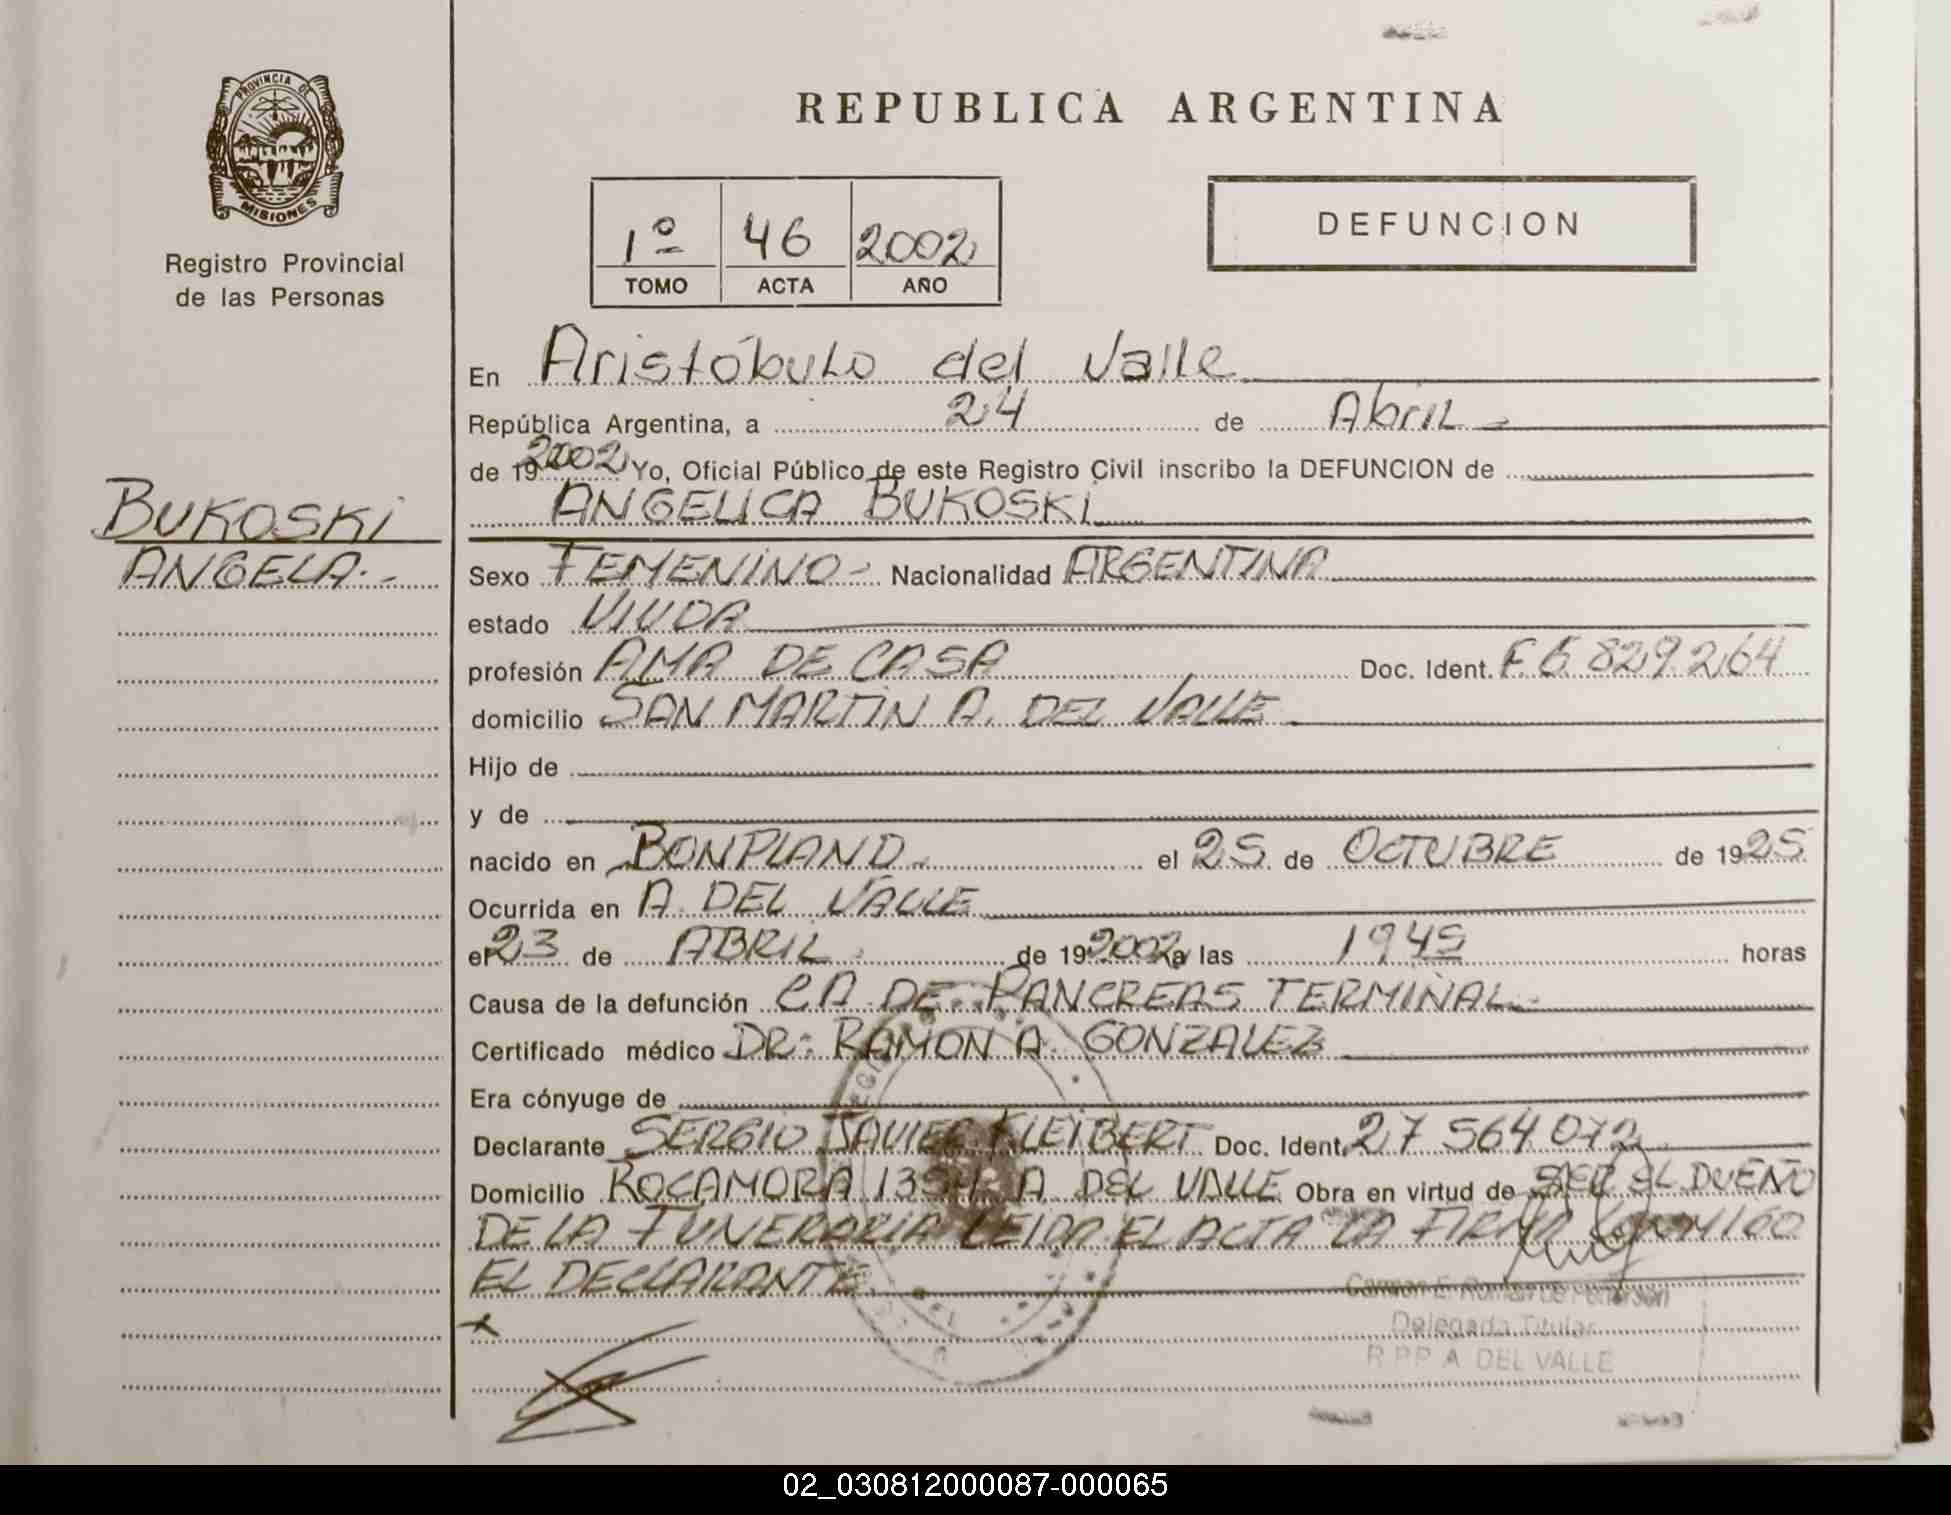 PROVINCIA DE
MISIONES
Registro Provincial
de las Personas
BUKOSKI
ANGELA.-
REPUBLICA ARGENTINA
1º 46 2002
TOMO ACTA AÑO
DEFUNCION
En Aristóbulo del Valle
República Argentina, a 24 de Abril
de 19 2002 Yo, Oficial Público de este Registro Civil inscribo la DEFUNCION de
ANGELICA BUKOSKI
Sexo FEMENINO- Nacionalidad ARGENTINA
estado VIUDA
profesión AMA DE CASA Doc. Ident. F. 6.829.264
domicilio SAN MARTIN A. DEL VALLE
Hijo de
y de
nacido en BONPLAND el 25 de OCTUBRE de 1925
Ocurrida en A. DEL VALLE
el 23 de ABRIL de 19 2002 a las 1945 horas
Causa de la defunción CA. DE PANCREAS TERMINAL
Certificado médico DR: RAMON A. GONZALEZ
Era cónyuge de
Declarante SERGIO JAVIER KLEIBERT Doc. Ident. 27 564 072
Domicilio ROCAMORA A. DEL VALLE Obra en virtud de SER EL DUEÑO
DE LA FUNERARIA LEIDA EL ACTA LA FIRMA CONMIGO
EL DECLARANTE.
Delegada Titular
R.P.P. A. DEL VALLE
02_030812000087-000065